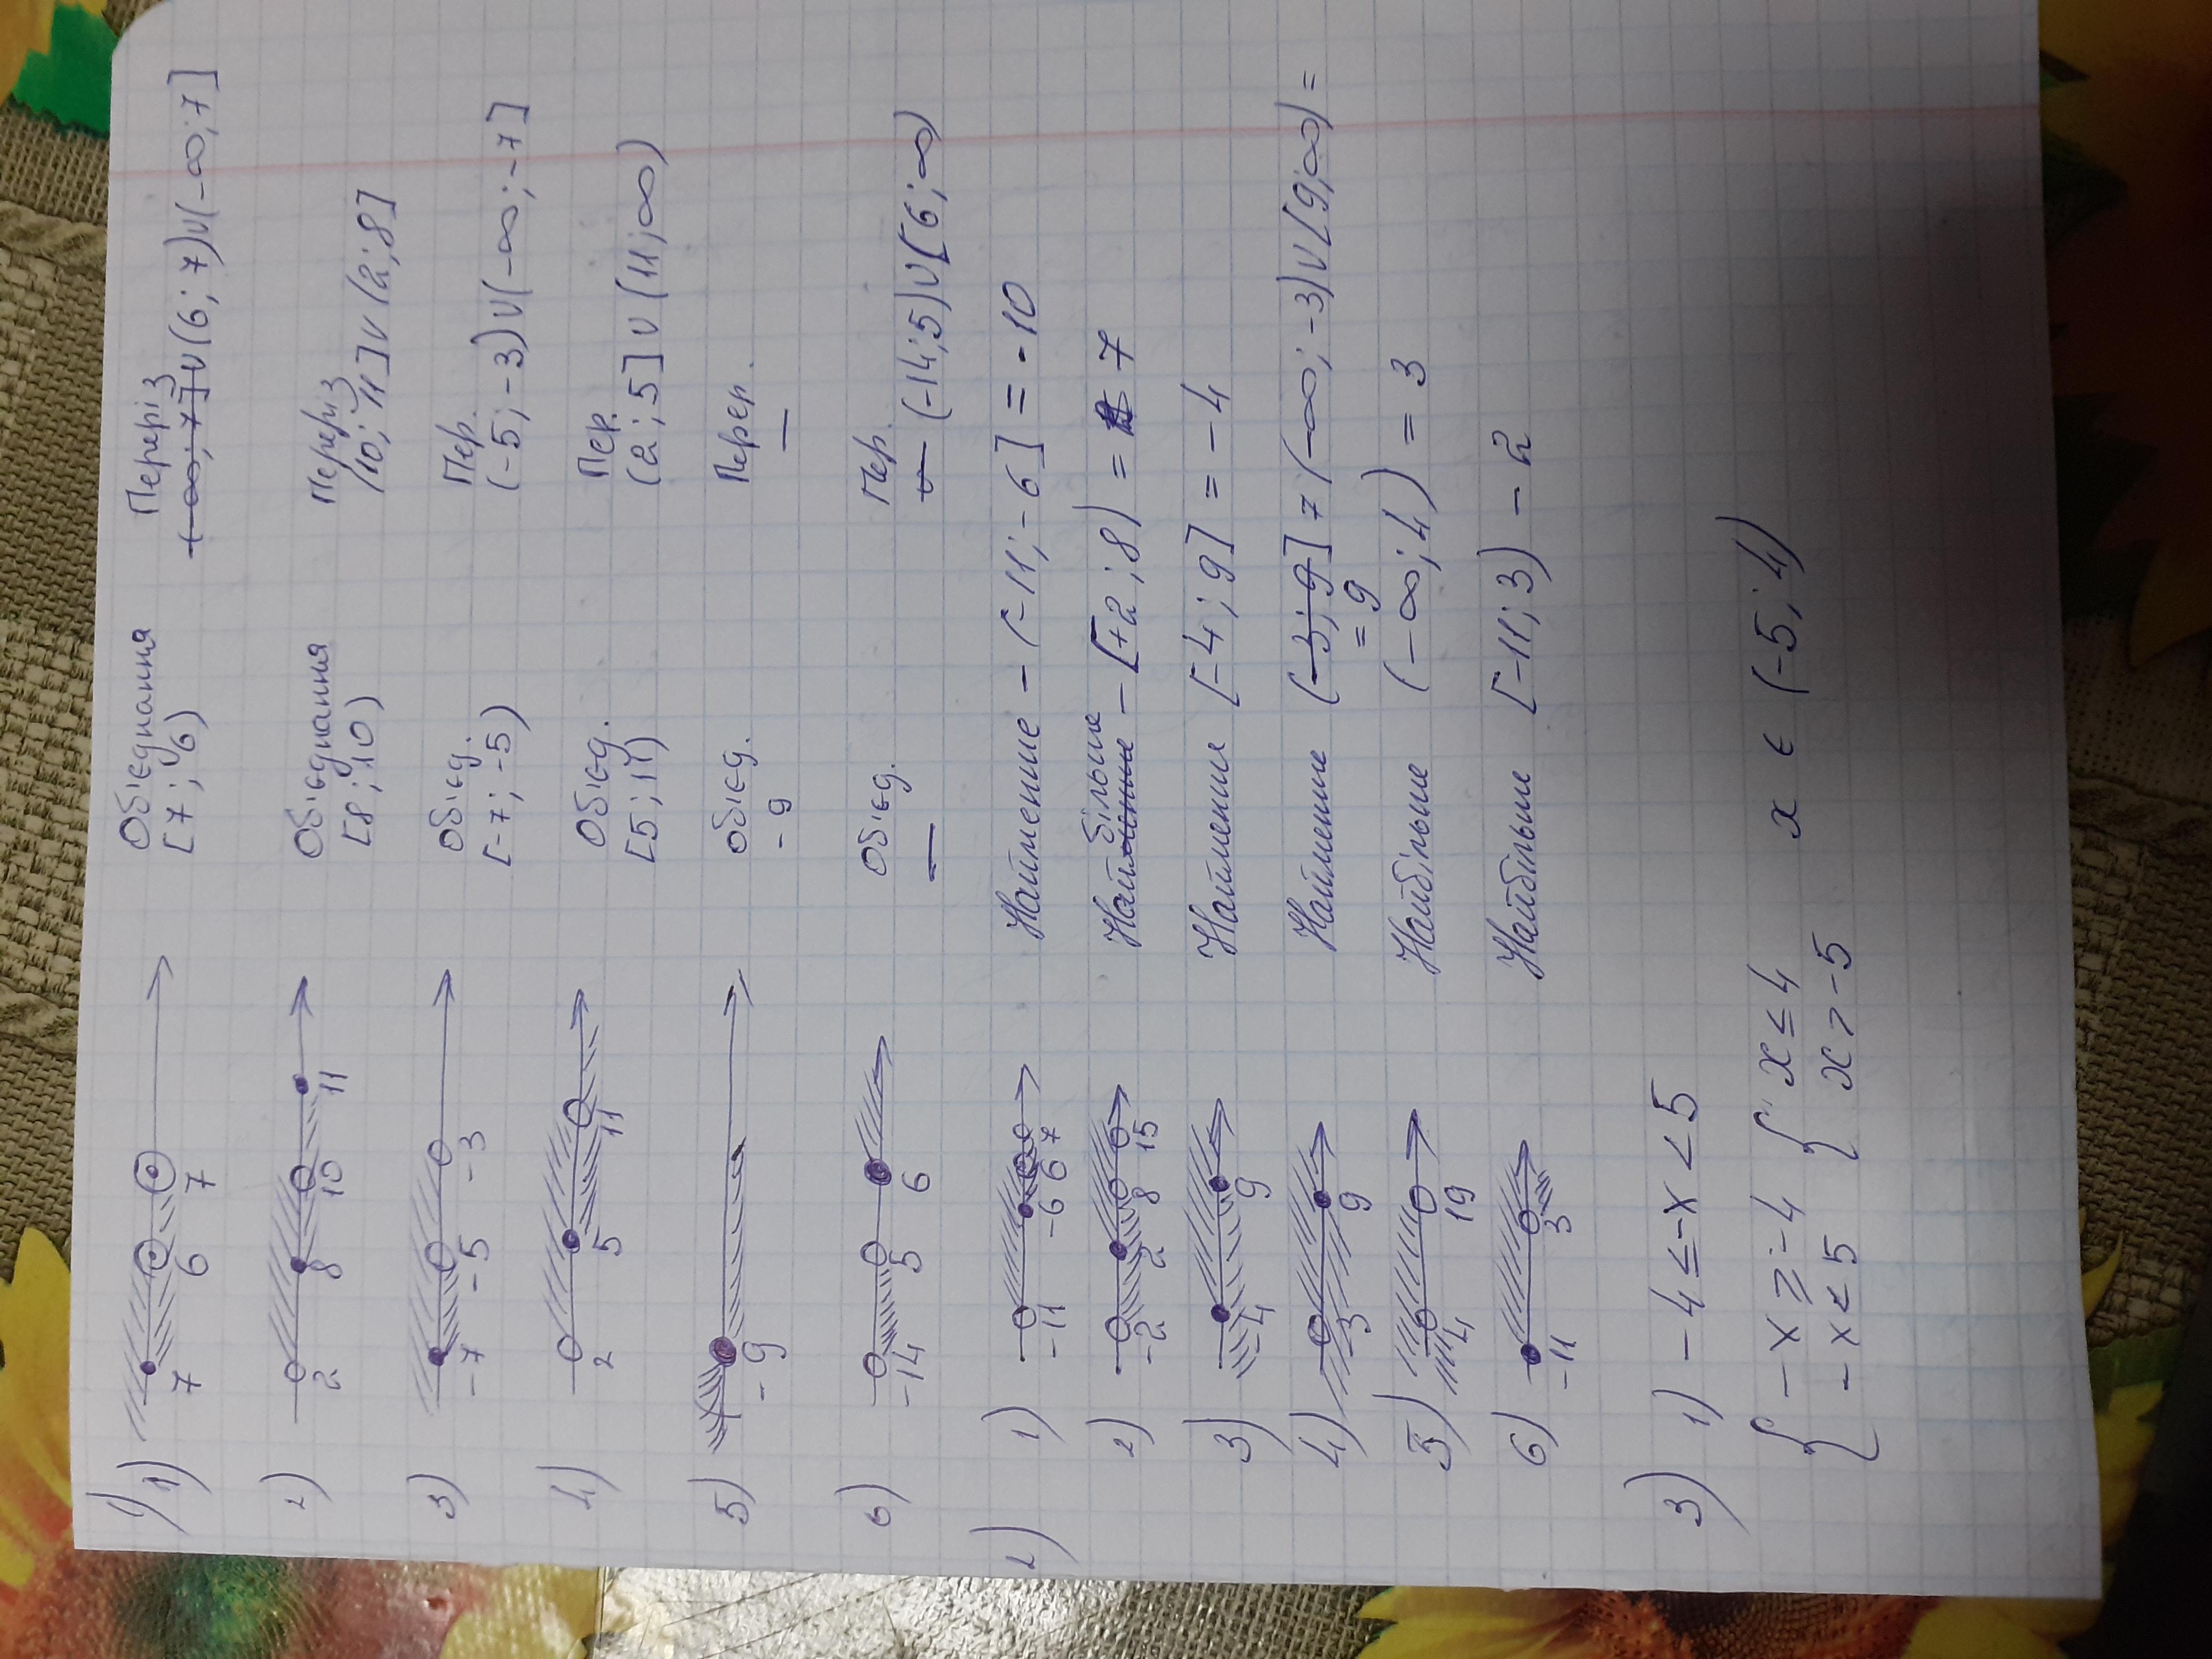 1) 1) 7 6 7 Обієднання Переріз
[7; 6) (-∞, 7]∪(6; 7)∪(-∞; 7]
2) 2 8 10 11 Обієднання Переріз
[8; 10) (10; 11]∪(2; 8]
3) -7 -5 -3 Обієд. Пер.
[-7; -5) (-5; -3)∪(-∞; -7]
4) 2 5 11 Обієд. Пер.
[5; 11) (2; 5]∪(11; ∞)
5) -9 Обієд. Перер.
-9 —
6) -14 5 6 Обієд. Пер.
— (-14; 5)∪[6; ∞)
2) 1) -11 -6 6 7 Найменше - (-11; -6] = -10
2) -2 2 8 15 Найбільше - [+2; 8) = 7
3) -4 9 Найменше [-4; 9] = -4
4) -3 9 Найменше (-3; 9] 7 (-∞; -3)∪[9; ∞) =
= 9
5) 4 19 Найбільше (-∞; 4) = 3
6) -11 3 Найбільше [-11; 3) - 2
3) 1) -4 ≤ -x < 5
{ -x ≥ -4 { x ≤ 4 x ∈ (-5; 4)
-x < 5 x > -5